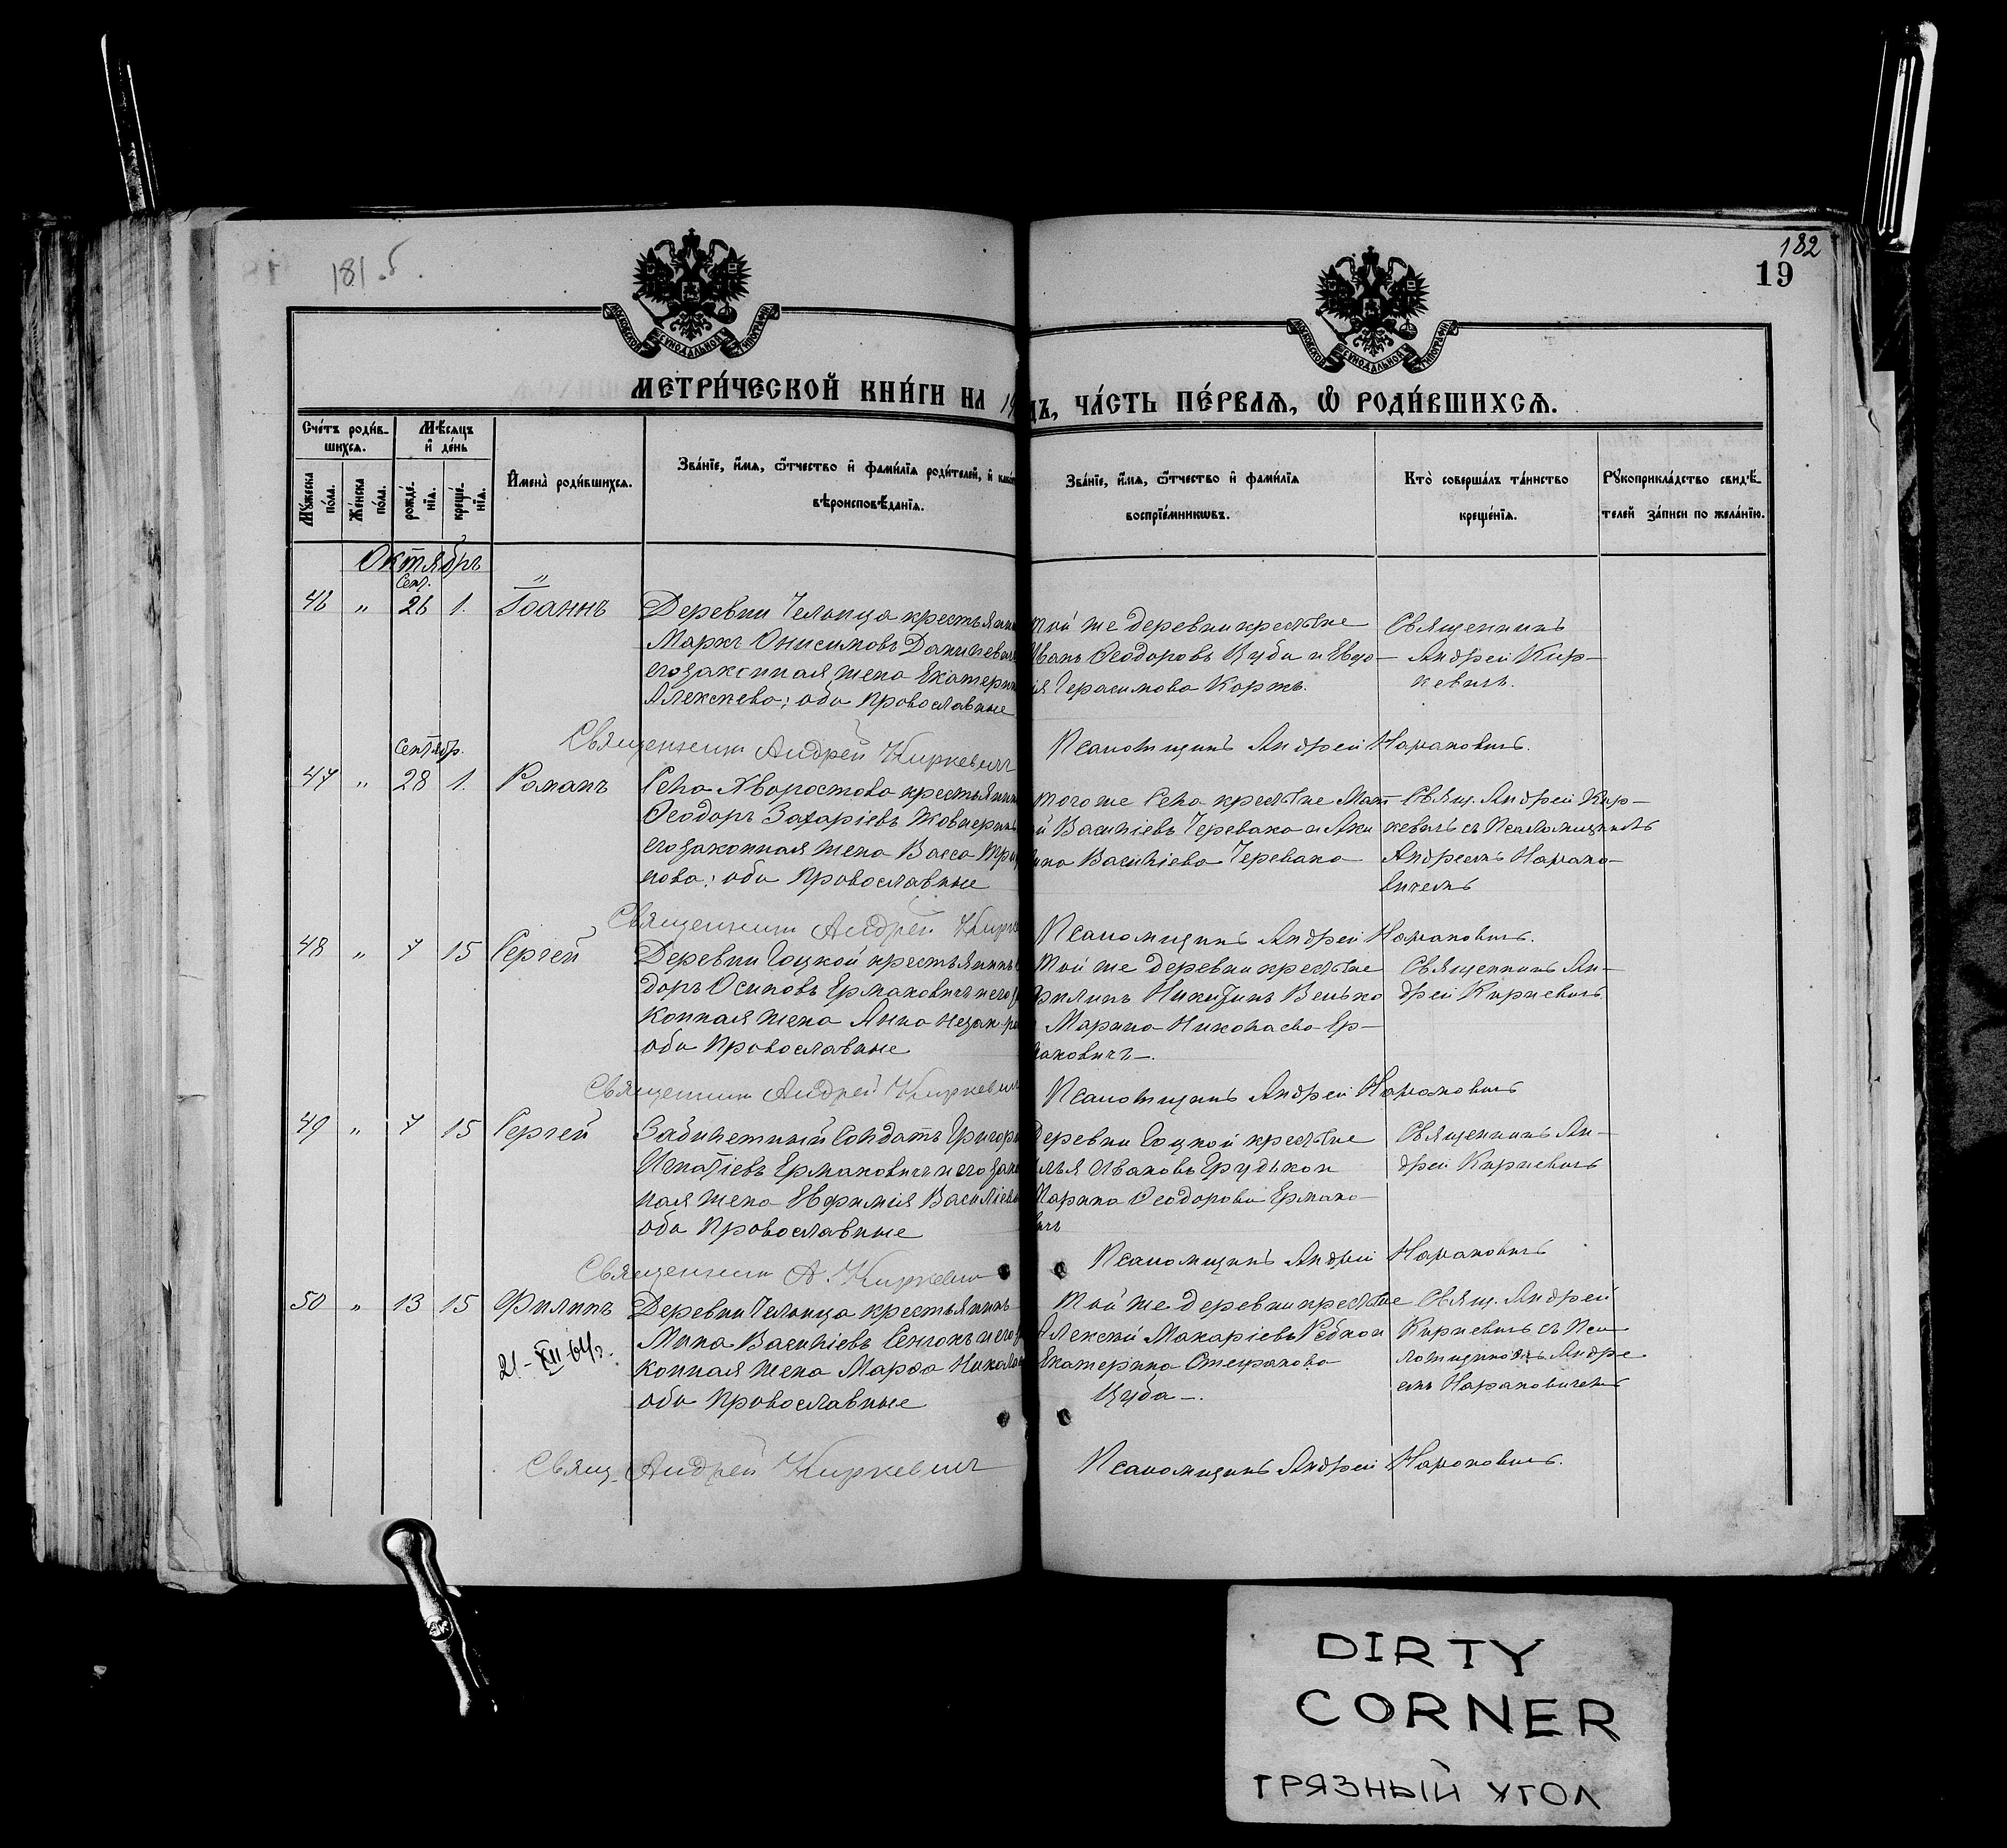 181.б.
182
19
МОСКОВСКОЙ СѴНОДАЛЬНОЙ ТИПОГРАФІИ
МОСКОВСКОЙ СѴНОДАЛЬНОЙ ТИПОГРАФІИ
МЕТРИ́ЧЕСКОЙ КНИ́ГИ НА 19
ДЪ, ЧА́СТЬ ПЕ́РВАѦ, Ѡ҆ РОДИ́ВШИХСѦ.
Сче́тъ роди́в-
шихсѧ.
Мѣ́сѧцъ
и҆ де́нь
Мꙋ́жеска по́ла.
Же́нска по́ла.
рожде́-нїѧ.
креще́-нїѧ.
И҆мена̀ роди́вшихсѧ.
Зва́нїе, и҆́мѧ, ѻ҆́тчество и҆ фами́лїѧ роди́телей, и҆
вѣроисповѣ́данїѧ.
Зва́нїе, и҆́мѧ, ѻ҆́тчество и҆ фами́лїѧ
воспрїе́мникѡвъ.
Кто̀ соверша́лъ та́инство
креще́нїѧ.
Рꙋкоприкла́дство свидѣ́-
телей за́писи по жела́нїю.
Октябрь
Сент.
46 " 26 1. Іоаннъ
Деревни Челонца крестьянин
Маркъ Онисимовъ Данилевич
его законная жена Екатерин
Алексѣева; оба Православные
той же деревни крестьяне
Иванъ Ѳеодоровъ Цуба и Евдо-
ія Герасимова Коржъ.
Священникъ
Андрей Кир-
кевичъ.
Священник Андрей Киркевич
Псаломщикъ Андрей Нарановичъ.
Сентябр.
47 " 28 1. Романъ
Села Хворостова крестьянин
Ѳеодоръ Захаріевъ Жовнеринъ
его законная жена Васса Три
нова; оба Православные
того же села крестьяне Мат
й Василіевъ Черевако и Аки
ина Василіева Черевако
Свящ. Андрей Кир-
кевичъ съ Псаломщикомъ
Андреемъ Нарано-
вичемъ
Священник Андрей Кирке
Псаломщикъ Андрей Нарановичъ.
48 " 7 15 Сергей
Деревни Гоцкой крестьянинъ
доръ Осиповъ Ермаковичъ и его за
конная жена Анна
оба Православные
той же деревни крестьяне
Филипъ Никитинъ Велько
Марина Николаева Ер-
маковичъ-.
Священникъ Ан-
дрей Киркевичъ
Священник Андрей Киркевич
Псаломщикъ Андрей Нарановичъ
49 " 7 15 Сергей
Забилетный Солдатъ Григорі
Игнатіевъ Ермаковичъ и его зако
ная жена Евфимія Василіева
оба Православные
Деревни Гоцкой крестьяне
Илья Ивановъ Грудько и
Марина Ѳеодорова Ермако-
вичъ
Священникъ Ан-
дрей Киркевичъ
Священник А. Киркевич
Псаломщикъ Андрей Нарановичъ
50 " 13 15 Филипъ
21-XII-64г.
Деревни Челонца крестьянинъ
Мина Василіевъ Сенюкъ и его за
конная жена Марѳа Никола
оба Православные
той же деревни крестьяне
Алексѣй Макаріевъ Рѣдко и
Екатерина Стефанова
Цуба-.
Свящ. Андрей
Киркевичъ съ Пса-
ломщикомъ Андре
емъ Нарановичемъ
Свящ. Андрей Киркевич
Псаломщикъ Андрей Нарановичъ.
DIRTY
CORNER
ГРЯЗНЫЙ УГОЛ